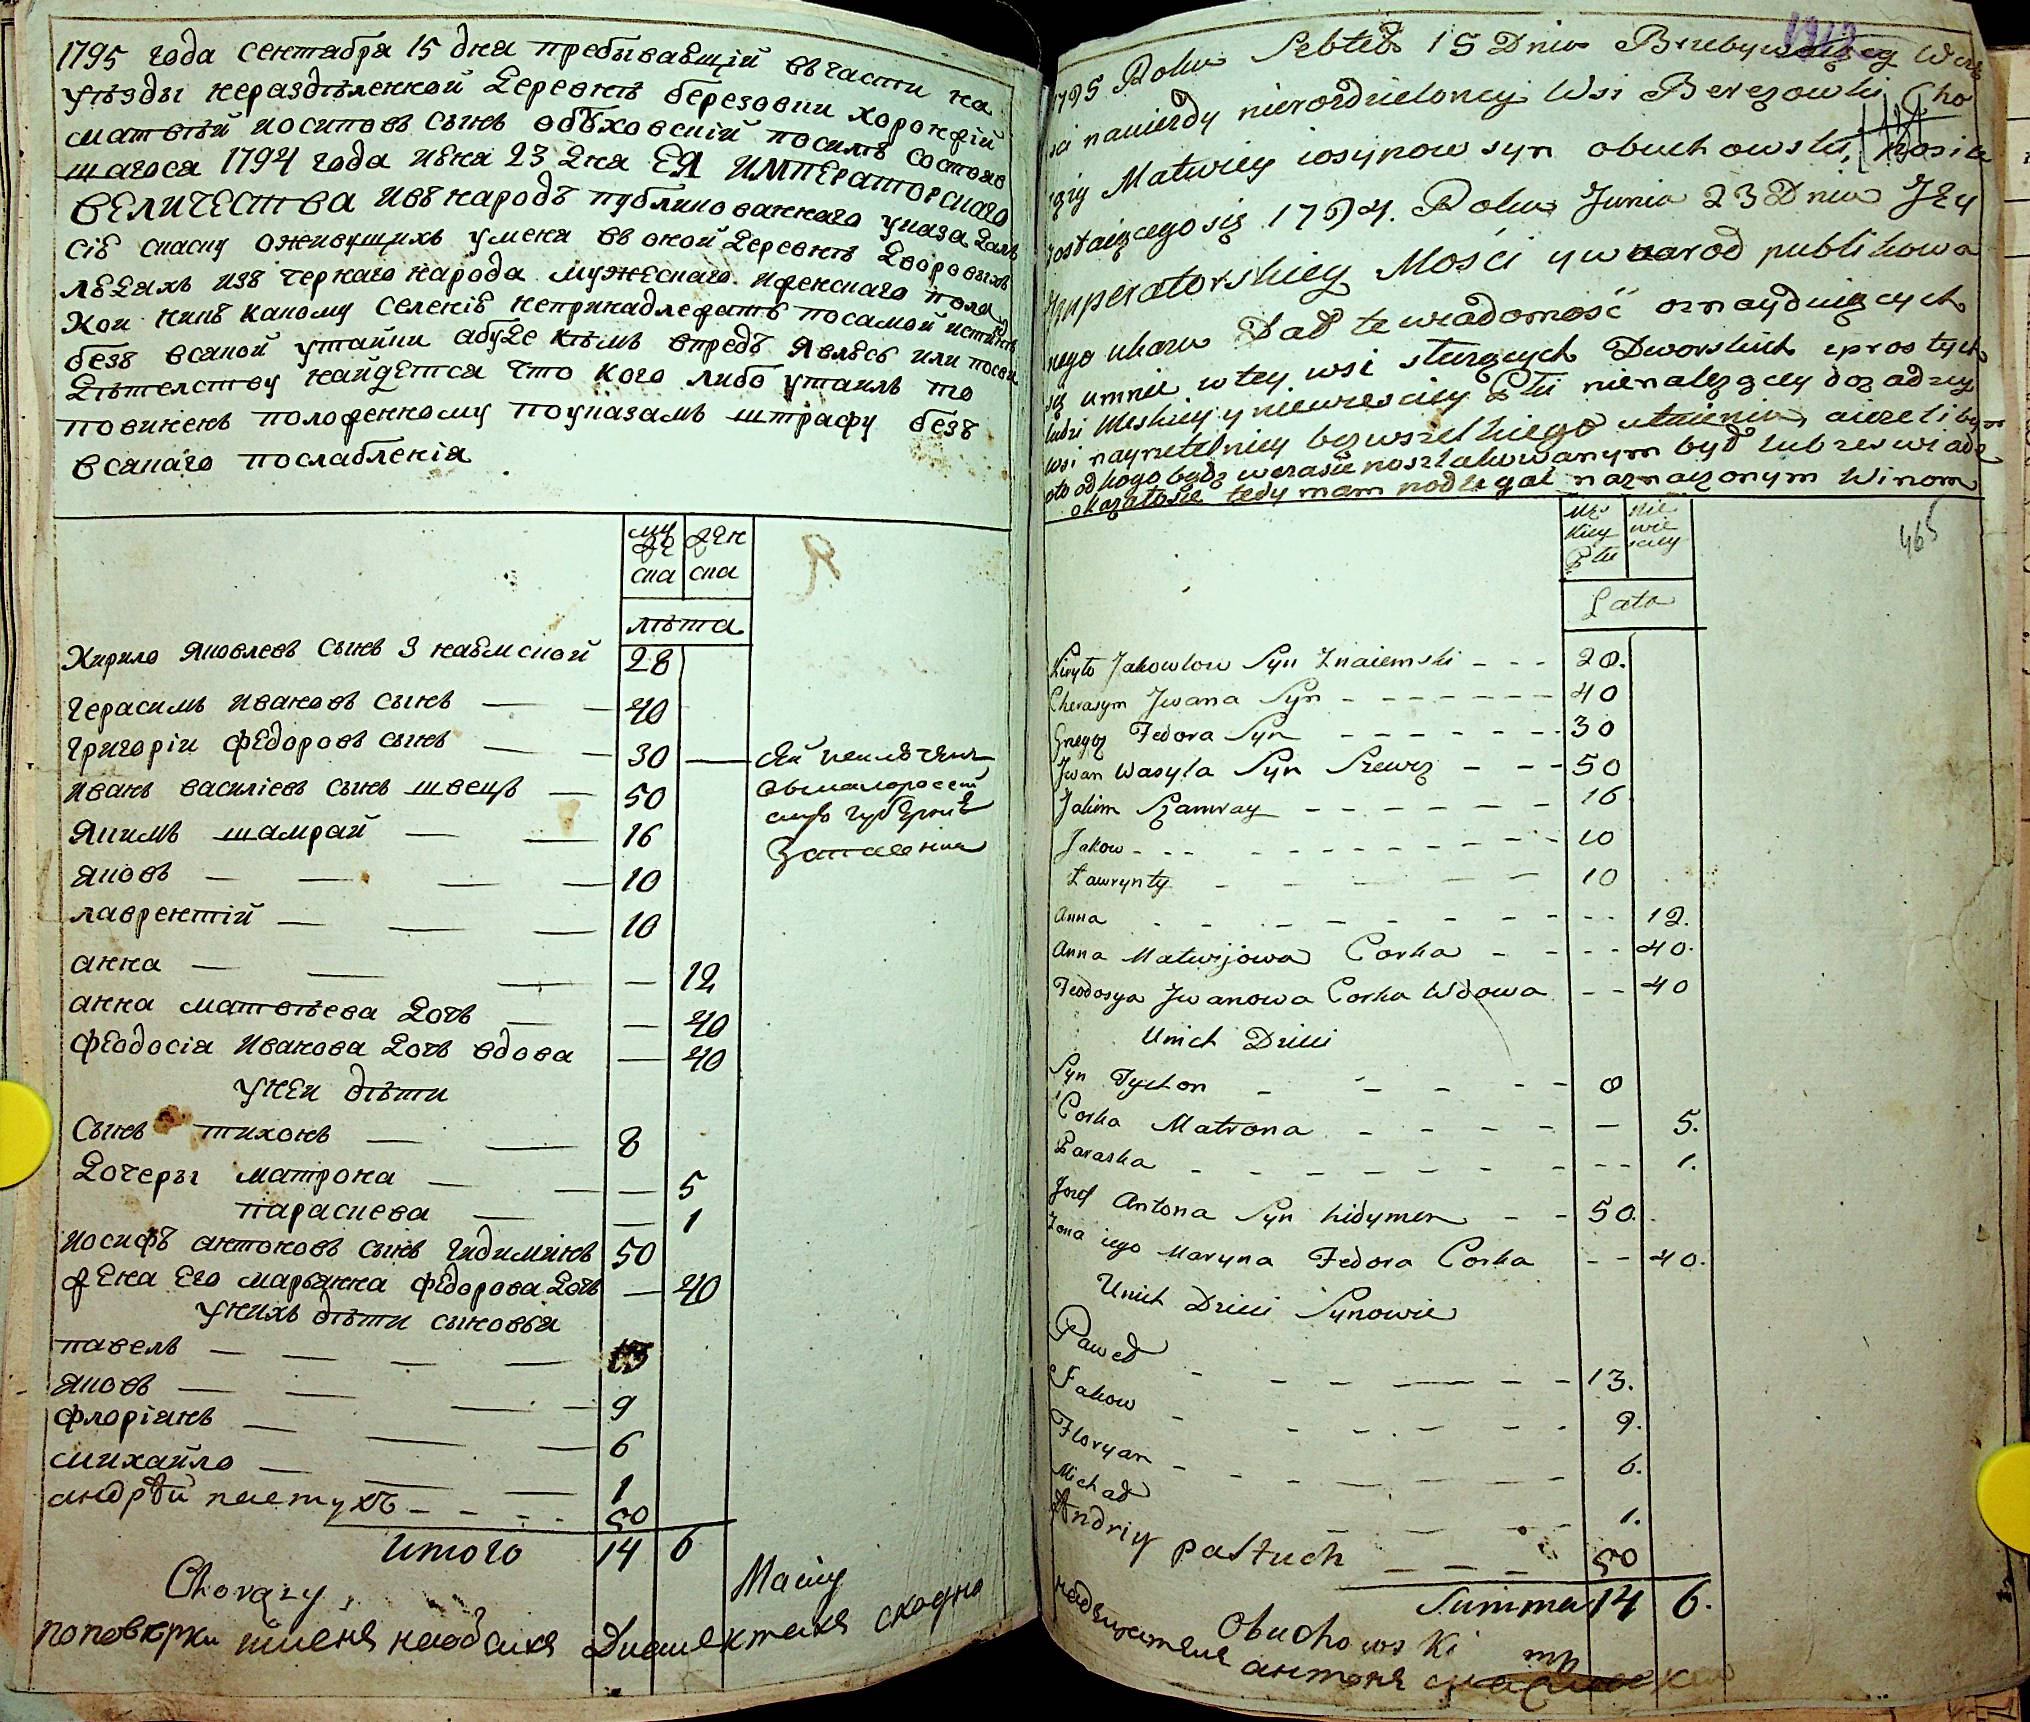 1795 года сентабра 15 дна пребываѣщій въ части на
уѣзды нераздѣленной деревнѣ березовки хоронжій
матвѣй иосиповъ сынъ обуховскій посилѣ состояв
шагося 1794 года июна 23 дна ЕЯ ИМПЕРАТОРСКАГО
ВЕЛИЧЕСТВА ивънародъ публикованнаго указа даль
сіѣ скаску оживущихъ уменя въ оной деревнѣ дворовыхъ
людяхъ изъ чернаго народа мужескаго иженскаго пола
кои кикъ какому селеніѣ непринадлежатъ посамой истиннѣ
безъ всакой утайки абуде кѣмъ впредъ явлюсь или посви
дѣтелству найдется что кого либо утаилъ то
повиненъ положенному поуказамъ штрафу безъ
всакаго послабленія
муже ска
жен ска
лѣта
Кирило яковлевъ сынъ знаѣмской 28
герасимъ ивановъ сынъ — — 40
григоріи федоровъ сынъ — — 30
иванъ василіевъ сынъ швецъ — 50
якимъ шамрай — — 16
яковъ — — — — 10
лаврентій — — — 10
анна — — — — 12
анна матвѣева дочь — — 40
феодосіа иванова дочь вдова — 40
унеи дѣти
сынъ тихонъ — — 8
дочеры матрона — — — 5
параскева — — 1
иосифъ антоновъ сынъ гидиминъ 50
жена его марьянна федорова дочь — 40
унихъ дѣти сыновьа
павелъ — — — — 13
яковъ — — — — 9
флоріянъ — — — 6
михайло — — — 1
андрѣй пастухъ - - - - 50
итого 14 6
Chorąży
Maciey
1795 Roku Febteb 15 Dnia
sci nauiezdy nierozdzieloney Wsi Berezowki Cho
rąży Matwiey iosypow syn obuchowski,
zostaiącego się 1794. Roku Junia 23 Dnia Jey
Imperatorskiey Mości y w narod publikowa
nego ukazu Dał te wiadomość oznayduiących
się umnie w tey wsi służących Dworskich yprostych
ludzi Meskiey y niewiesciey Płci nienależącey do żadney
wsi nayrzetelniey bezwszelkiego utaienia, aieżeliby
oto od kogo bądz wczasie poszlakowanym był lub zeswiade
okazałosie tedy mam podlegać naznaczonym Winom
465
Męs kiey Płci
nie wie sciey
Lata
Kiryło Jakowlow Syn Znaiemski - - - 28.
Cherasym Jwana Syn - - - - - - - 40
Gregor Fedora Syn - - - - - - - 30
Jwan Wasyla Syn Szewcz - - - 50
Jakim Szamray - - - - - - 16
Jakow - - - - - - - - - 10
Ławrynty - - - - - - 10
Anna - - - - - - - - - 12.
Anna Matwijowa Corka - - - - 40.
Feodosya Jwanowa Corka Wdowa - - 40
Unich Dzieci
Syn Tychon - - - - - 8
Corka Matrona - - - - - - 5.
Paraska - - - - - - - - - 1.
Jozef Antona Syn hidymen - - 50.
Zona iego Maryna Fedora Corka - - 40.
Unich Dzieci Synowie
Paweł - - - - - - - 13.
Jakow - - - - - - 9.
Floryan - - - - - - 6.
Michał - - - - 1.
Andriy pastuch - - - 50
Summa 14 6.
Obuchowski mp